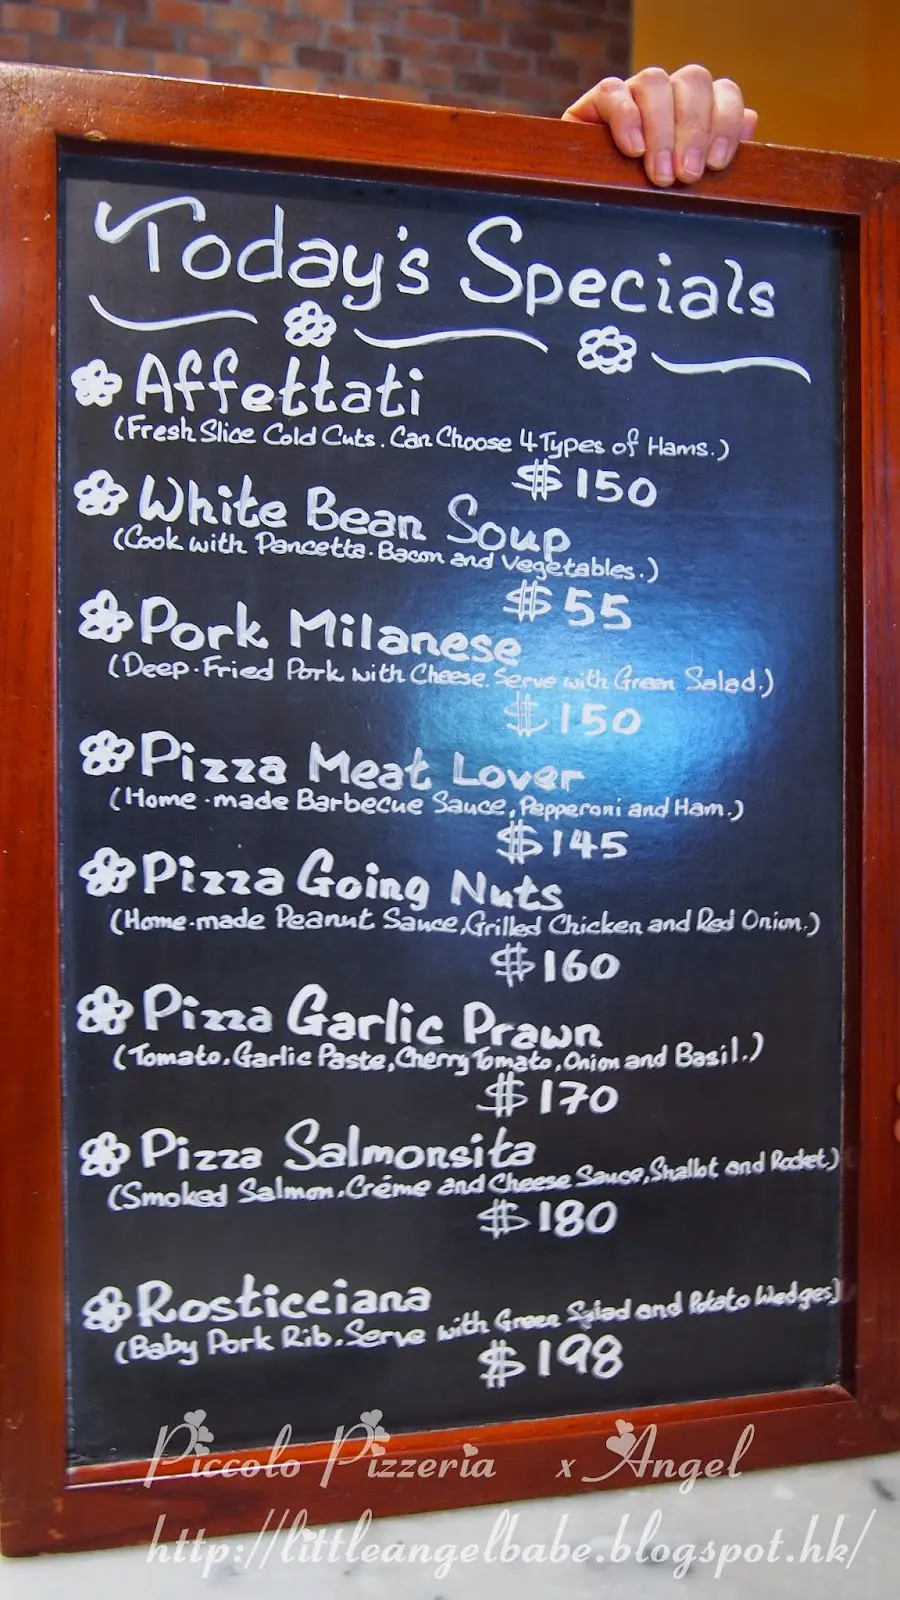 Today's Specials
Affettati
(Fresh Slice Cold Cuts. Can Choose 4 Types of Hams.)
$150
White Bean Soup
(Cook with Pancetta. Bacon and Vegetables.)
$55
Pork Milanese
(Deep-Fried Pork with Cheese. Serve with Green Salad.)
$150
Pizza Meat Lover
(Home-made Barbecue Sauce, Pepperoni and Ham.)
$145
Pizza Going Nuts
(Home-made Peanut Sauce, Grilled Chicken and Red Onion.)
$160
Pizza Garlic Prawn
(Tomato, Garlic Paste, Cherry Tomato, Onion and Basil.)
$170
Pizza Salmonsita
(Smoked Salmon, Créme and Cheese Sauce, Shallot and Rocket.)
$180
Rosticciana
(Baby Pork Rib. Serve with Green Salad and Potato Wedges)
$198
Piccolo Pizzeria x Angel
http://littleangelbabe.blogspot.hk/